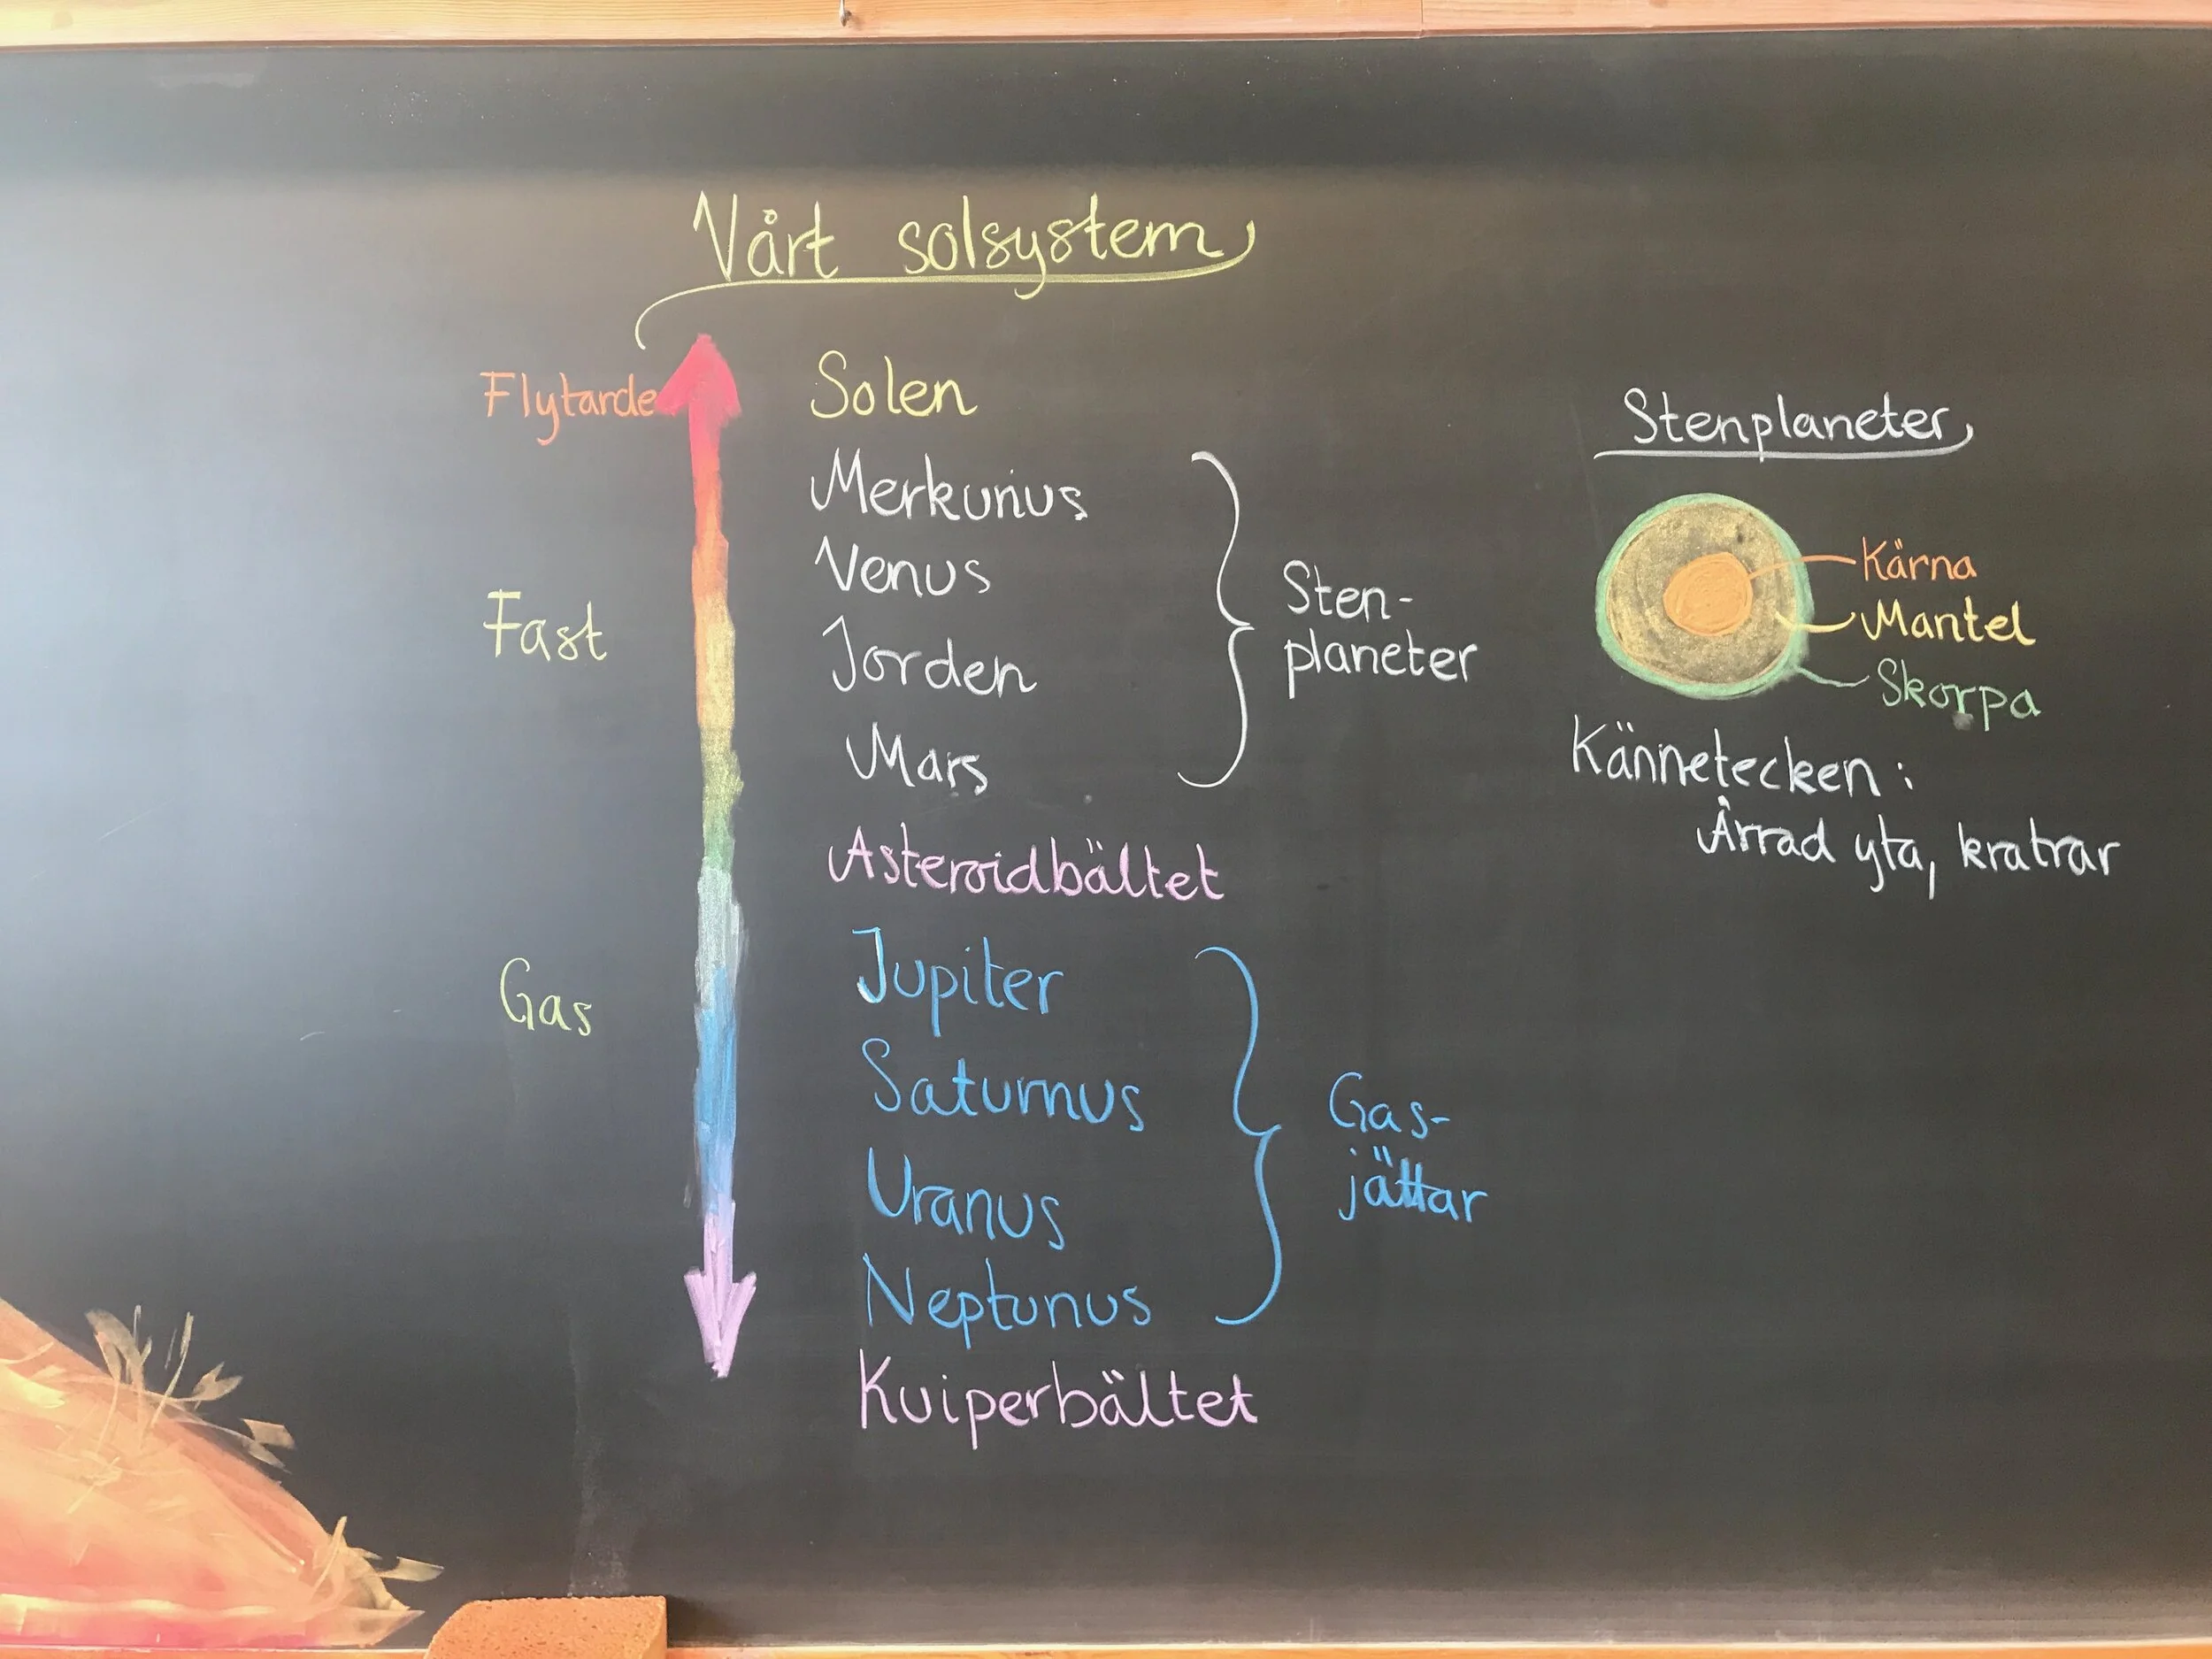 Vårt solsystem
Flytande
Solen
Merkurius
Venus
Fast
Jorden
Mars
Sten-
planeter
Asteroidbältet
Gas
Jupiter
Saturnus
Uranus
Neptunus
Gas-
jättar
Kuiperbältet
Stenplaneter
Kärna
Mantel
Skorpa
Kännetecken:
Ärrad yta, kratrar